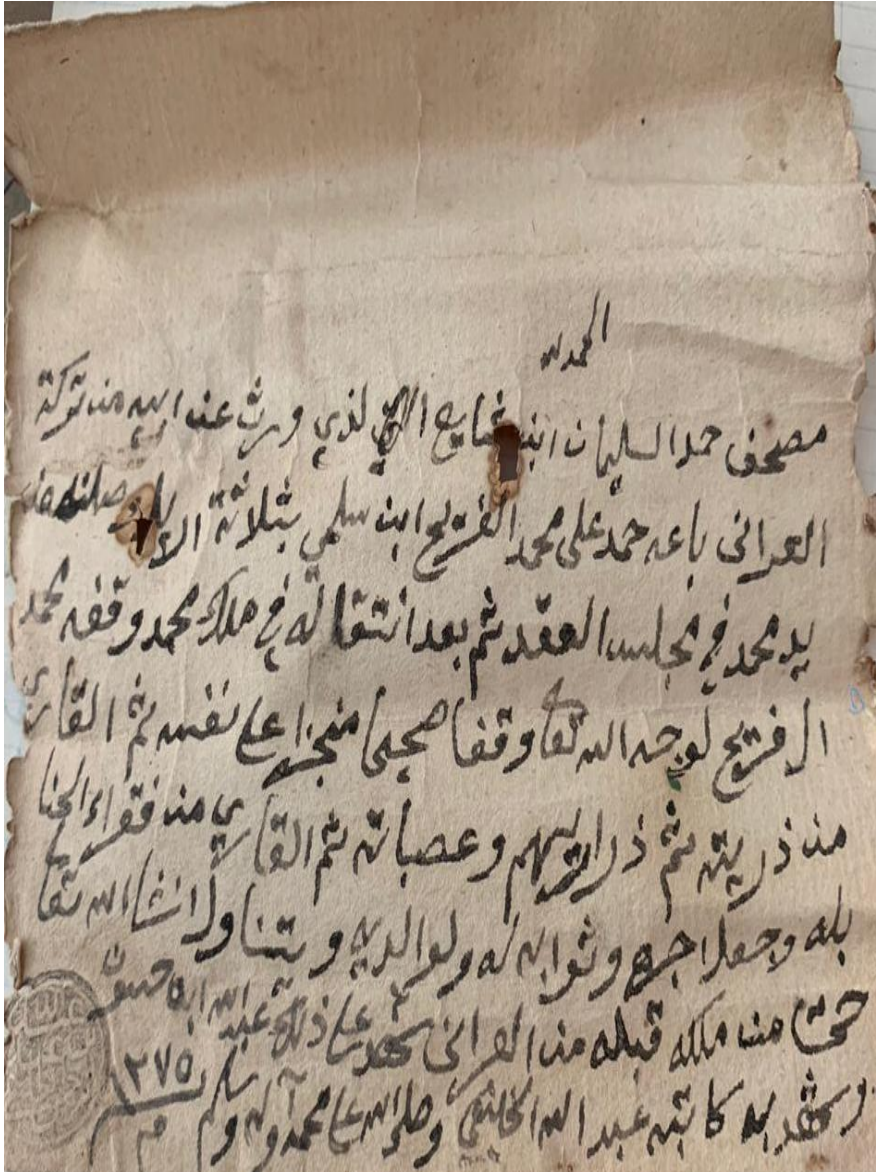 الحمد لله
مصحف حمد السليمان ابن شايع الذي ورث عن ابيه من تركة
العرانى باعه حمد على محمد الفريح ابن سلمي بثلاثة
يد محمد في مجلس العقد ثم بعد انتقاله في ملك محمد وقفه محمد
الفريح لوجه الله تعا وقفا صحيحا منجزا على نفسه ثم القاري
من ذريته ثم ذراريهم وعصباته ثم القاري من فقراء الحنا
بله وجعل اجره وثوابه له ولوالديه ويتناول انشا الله تعا
حتى من ملكه قبله من العرانى شهد على ذلك عبد الله
وشهد به كاتبه عبد الله الخليفي وصلى الله على محمد وآله وسلم ١٢٧٥